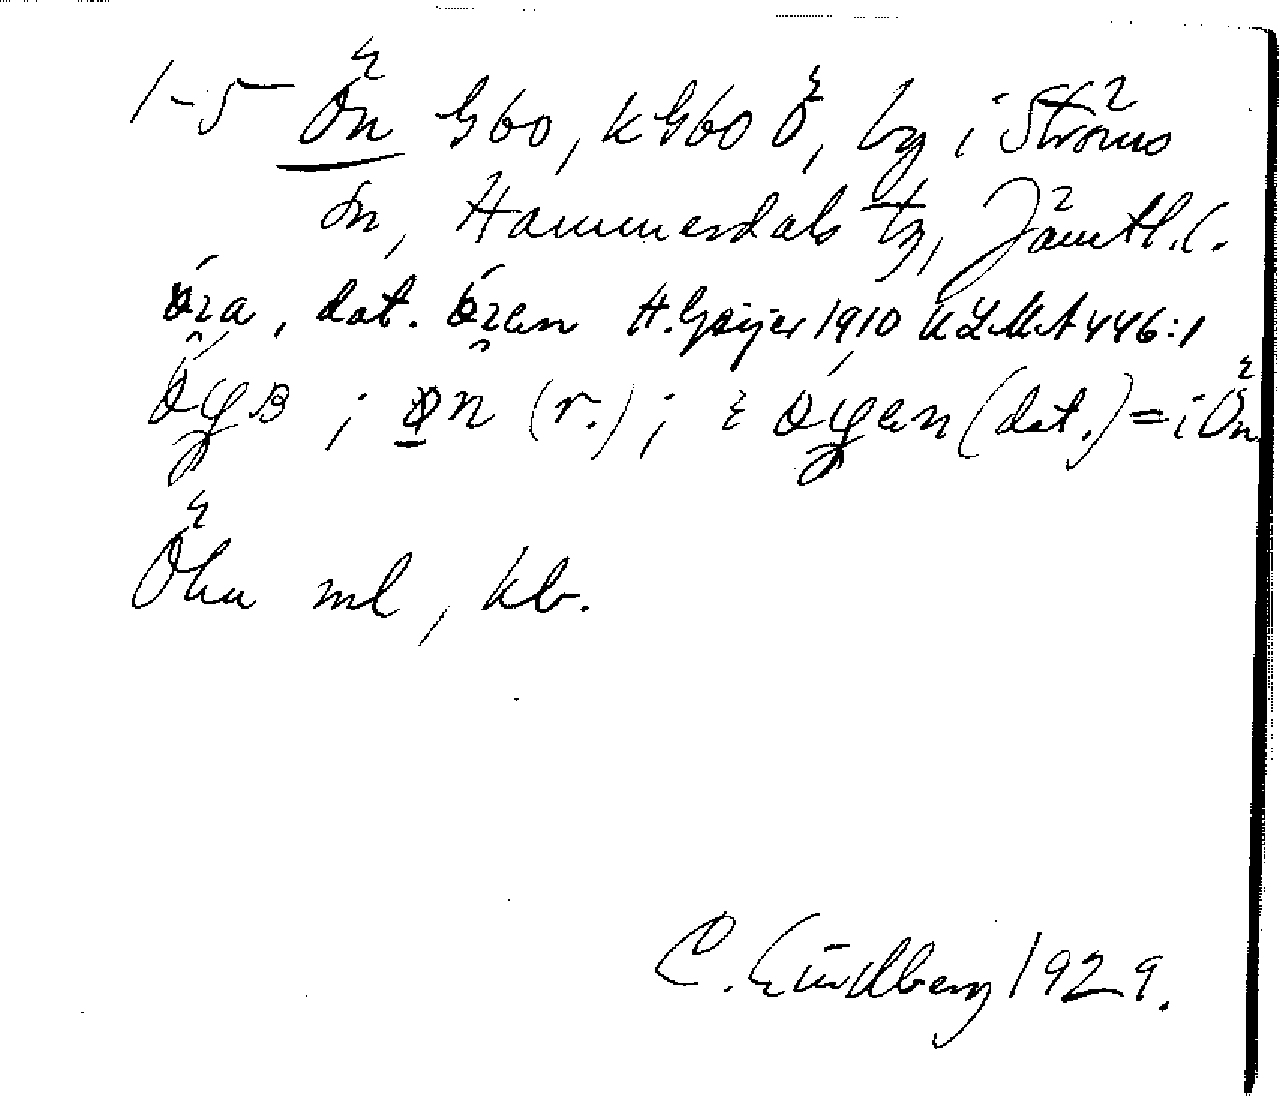 1-5 Ön G60, KG60 Ö, by i Ströms
sn, Hammerdals tg, Jämtl. l.
öza, dat. özen H. Geijer 1910 ULMA 446:1
; øn (r.); (dat.) = i Ön
Öhn ml, kb.
C. Lindberg 1929.